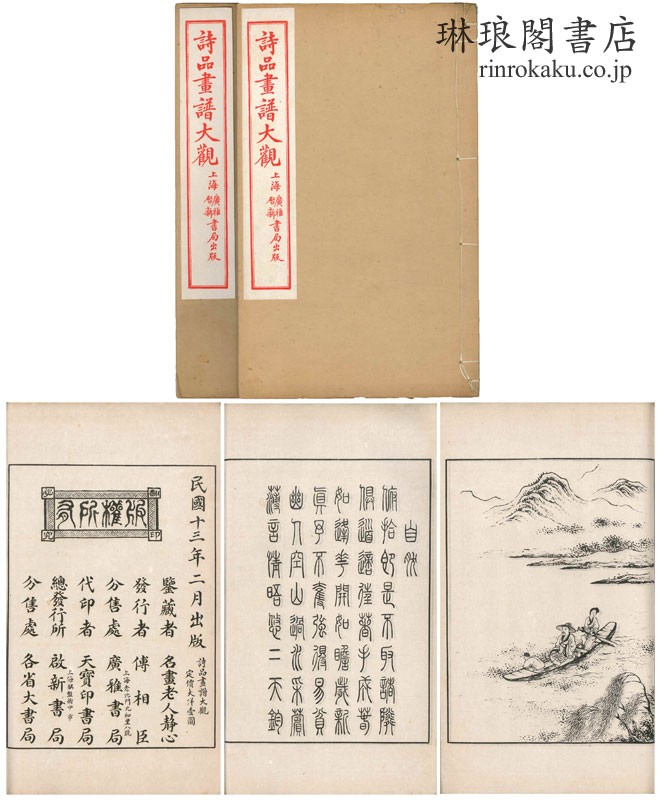 琳琅閣書店
rinrokaku.co.jp
詩品畫譜大觀
上海 廣雅 啓新 書局出版
詩品畫譜大觀
上海 廣雅 啓新 書局出版
自然
俯拾即是不取諸隣
俱道適往著手成春
如逢華開如瞻歲新
眞予不奪強得易貧
幽人空山過水采蘋
薄言情晤悠二天鈞
民國十三年二月出版
詩品畫譜大觀
定價大洋壹圓
鑒藏者 名畫老人静心
發行者 傅相臣
分售處 廣雅書局
代印者 天寶印書局
總發行所 啟新書局
上海棋盤街中市
分售處 各省大書局
版權所有
翻印必究